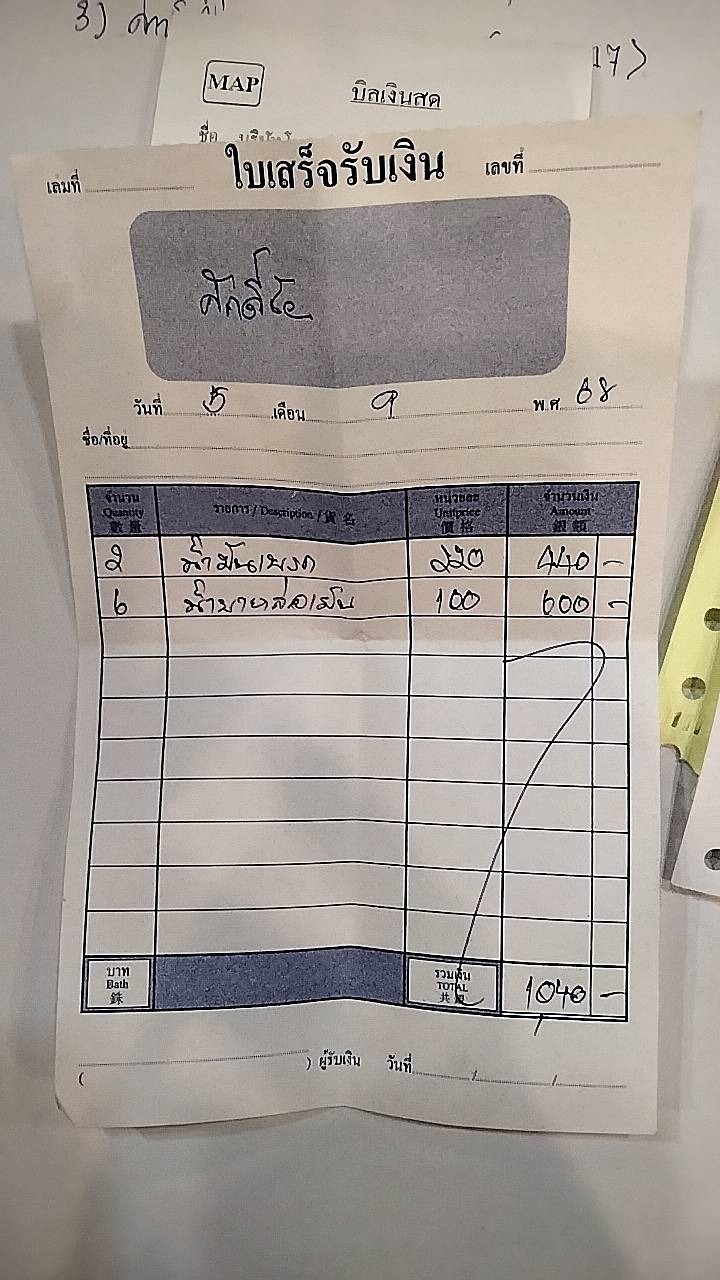 3)
17)
MAP บิลเงินสด
ชื่อ
ใบเสร็จรับเงิน
เล่มที่ เลขที่
ศักดิ์
วันที่ 5 เดือน 9 พ.ศ. 68
ชื่อ/ที่อยู่
จำนวน รายการ / Description / 貨名 หน่วยละ จำนวนเงิน
Quantity Unitprice Amount
數量 價格 銀額
2 น้ำมันเบรค 220 440 -
6 น้ำยาหล่อเย็น 100 600 -
บาท รวมเงิน
Bath TOTAL 1040 -
銖 共
) ผู้รับเงิน วันที่ / /
(